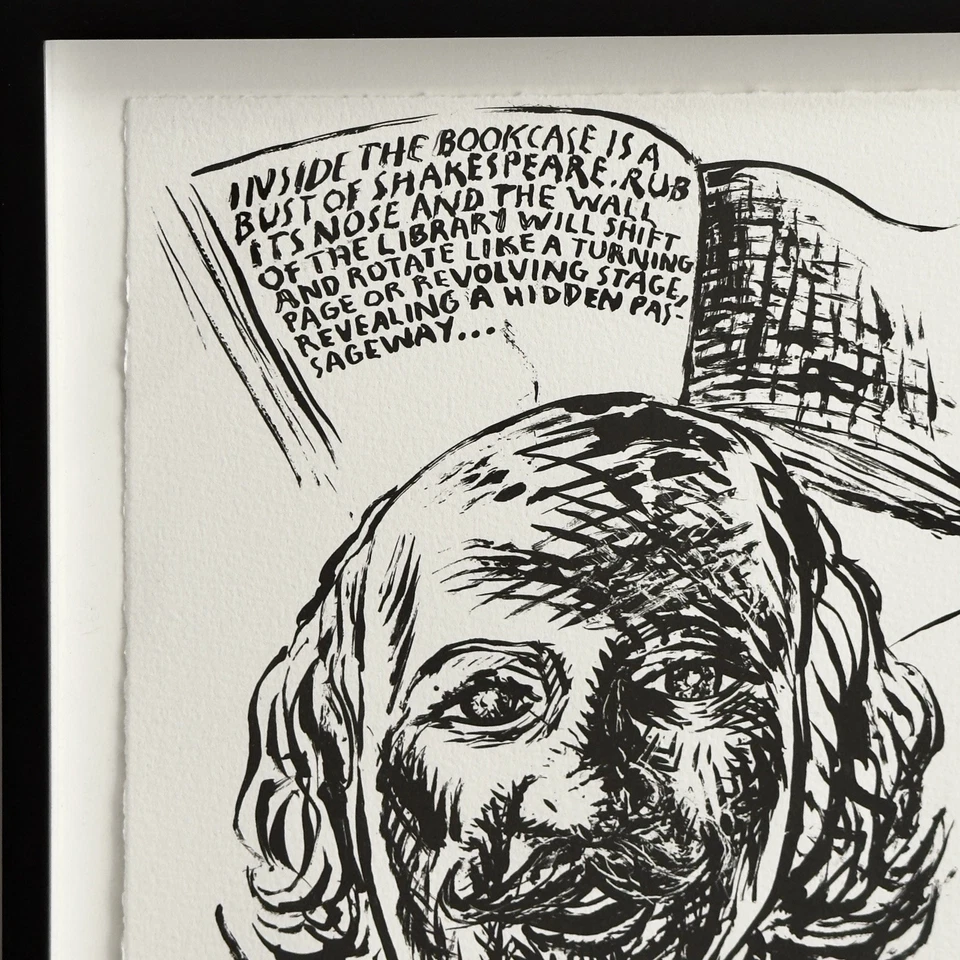 INSIDE THE BOOKCASE IS A
BUST OF SHAKESPEARE. RUB
ITS NOSE AND THE WALL
OF THE LIBRARY WILL SHIFT
AND ROTATE LIKE A TURNING
PAGE OR REVOLVING STAGE,
REVEALING A HIDDEN PAS-
SAGEWAY...